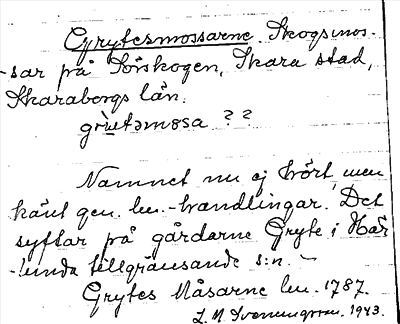 Grytesmossarne. Skogsmos-
-sar på Sörskogen, Skara stad,
Skaraborgs län.
grùtəmɵsa ??
Namnet nu ej hört, men
känt gen. lm.-handlingar. Det
syftar på gårdarne Gryte i Här-
-lunda tillgränsande s:n. -
Grytes Måsarne lm. 1787.
L. M. Svenungsson. 1943.